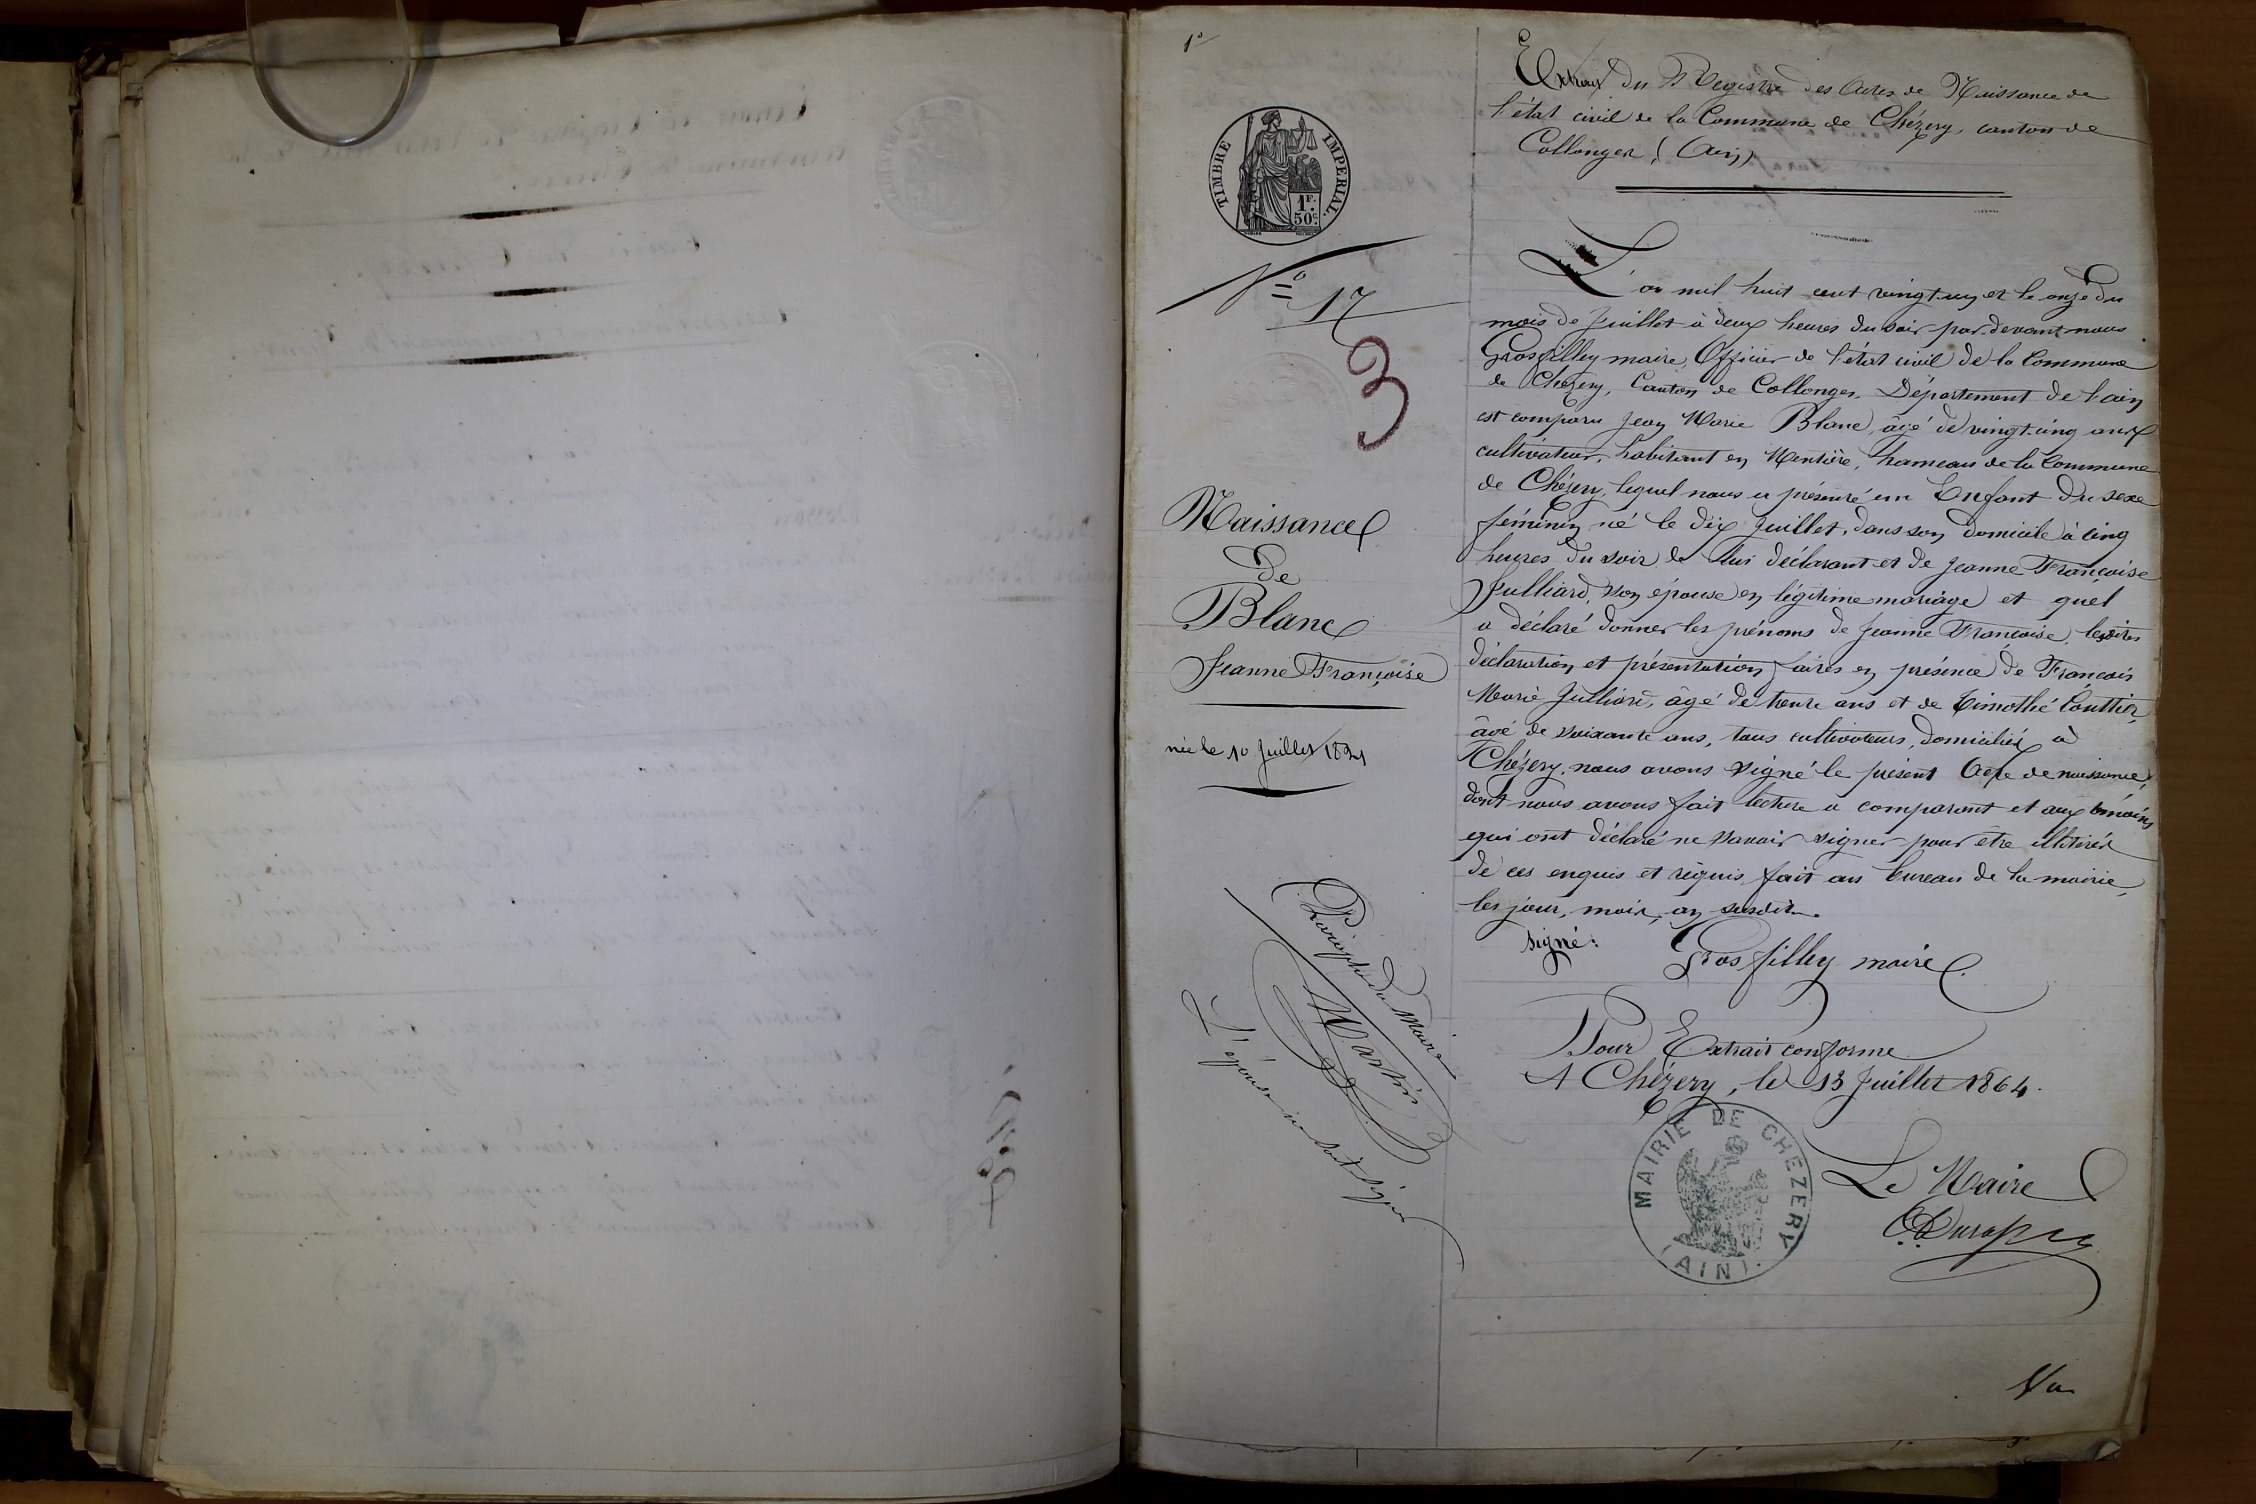 1°
TIMBRE IMPERIAL.
1F. 50c.
N° 17
3
Naissance
de
Blanc
Jeanne Françoise
née le 10 Juillet 1821
Paraphe du Maire
Martin
L'épouse ne sait signer
Extrait du Registre des Actes de Naissance de
l'état civil de la Commune de Chézery, canton de
Collonges, (Ain)
L'an mil huit cent vingt-un et le onze du
mois de Juillet à deux heures du soir par-devant nous
Grosfilley maire, Officier de l'état civil de la Commune
de Chézery, Canton de Collonges, Département de l'ain
est comparu Jean Marie Blanc, âgé de vingt-cinq ans
cultivateur, habitant en Mentière, hameau de la Commune
de Chézery, lequel nous a présenté un Enfant du sexe
féminin né le dix Juillet, dans son domicile à cinq
heures du soir de lui déclarant et de Jeanne Françoise
Julliard, son épouse en légitime mariage et quel
a déclaré donner les prénoms de Jeanne Françoise, lesdites
déclaration et présentation faites en présence de François
Marie Julliard, âgé de trente ans et de Timothé Gauthier
âgé de soixante ans, tous cultivateurs, domiciliés à
Chézery, nous avons signé le présent Acte de naissance,
dont nous avons fait lecture a comparant et aux témoins
qui ont déclaré ne savoir signer pour être illitérés
de ces enquis et réquis, fait au bureau de la mairie,
les jour, mois, an susdits.
signé: Grosfilley maire
Pour Extrait conforme
A Chézery, le 13 Juillet 1864.
MAIRIE DE CHEZERY (AIN).
Le Maire
Vu